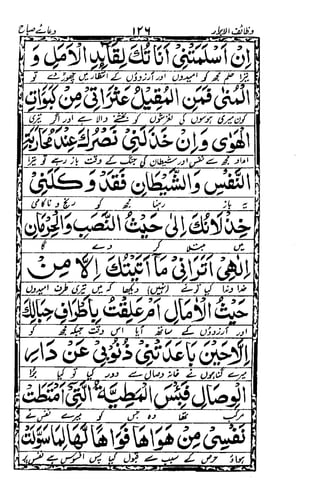 وظائف الابرار ۱۲۶ دعائے صباح
اِنْ اَسْلَمَتْنِیْ اَنَاتُكَ لِقَآئِدِ الْاَمَلِ وَ
تیرا حلم مجھ کو امیدوں اور آرزوؤں کے انتظار میں چھوڑ دے تو
الْمُنٰی فَمَنِ الْمُقِیْلُ عَثَرَاتِیْ مِنْ كَبَوَاتِ
کون میری ہوسوں کی لغزشوں کو بخشنے والا ہے اور اگر تیری
الْهَوٰی وَاِنْ خَذَلَنِیْ نَصْرُكَ عِنْدَ مُحَارَبَةِ
امداد مجھ سے نفس اور شیطان کی جنگ کے وقت باز رہے تو تیرا
النَّفْسِ وَالشَّیْطَانِ فَقَدْ وَكَلَنِیْ
یہ باز رہنا مجھ کو رنج و ناکامی
خِذْلَانُكَ اِلٰی حَیْثُ النَّصَبِ وَالْحِرْمَانِ
میں مبتلا کر دے گا
اِلٰهِیْ اَتَرَانِیْ مَآ اَتَیْتُكَ اِلَّا مِنْ
خداوندا کیا تونے (نہیں) دیکھا کہ میں تیری طرف امیدوں
حَیْثُ الْاٰمَالِ اَمْ عَلِقْتُ بِاَطْرَافِ حِبَالِكَ
اور آرزوؤں کے ساتھ آیا اس وقت جبکہ مجھ کو
اِلَّا حِیْنَ بَاعَدَتْنِیْ ذُنُوْبِیْ عَنْ دَارِ
میرے گناہوں نے خانہ وصال سے دور کیا تو کیا برا
الْوِصَالِ فَبِئْسَ الْمَطِیَّةُ الَّتِیْ امْتَطَتْ
مرکب تھا وہ جس کو میرے نفس نے
نَفْسِیْ مِنْ هَوَاهَا فَوَاهًا لَهَا لِمَا سَوَّلَتْ
حرص کے سبب سے قبول کیا پس افسوس ہے نفس پر